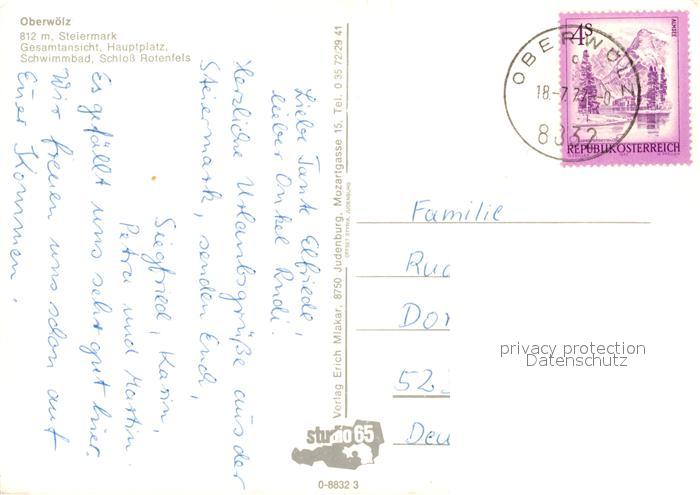 Oberwölz
812 m, Steiermark
Gesamtansicht, Hauptplatz,
Schwimmbad, Schloß Rotenfels
Liebe Tante Elfriede,
lieber Onkel Rudi!
Herzliche Urlaubsgrüße aus der
Steiermark, senden Euch,
Siegfried, Karin,
Petra und Martin.
Es gefällt uns sehr gut hier.
Wir freuen uns schon auf
Euer Kommen.
Verlag Erich Mlakar, 8750 Judenburg, Mozartgasse 15, Tel. 0 35 72/29 41
OFFSET STYRIA, JUDENBURG
studio 65
0-8832 3
OBERWÖLZ
18.-7.77-
8832
4S
ALMSEE
REPUBLIK ÖSTERREICH
Familie
Ruc
Dor
52
Deu
privacy protection
Datenschutz